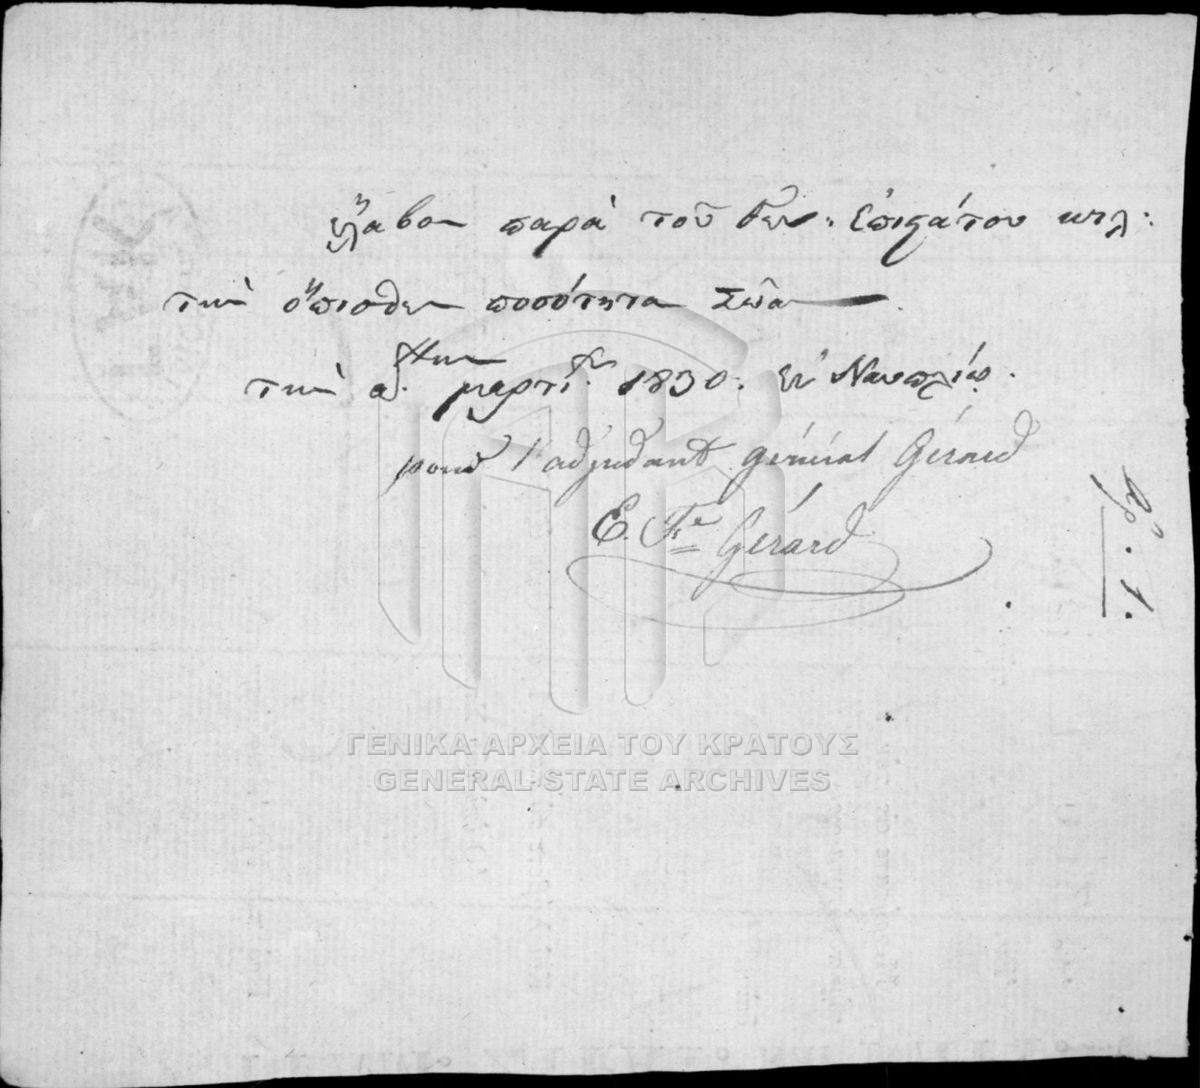 ἔλαβον παρὰ τοῦ Γεν: Επιστάτου κτλ:
τὴν ὄπισθεν ποσότητα Σώαν
τὴν α: μαρτί: 1830: ἐν Ναυπλίῳ.
pour l'adjudant général Gérard
E. Fe Gérard
Αρ. 1.
ΓΕΝΙΚΑ ΑΡΧΕΙΑ ΤΟΥ ΚΡΑΤΟΥΣ
GENERAL STATE ARCHIVES